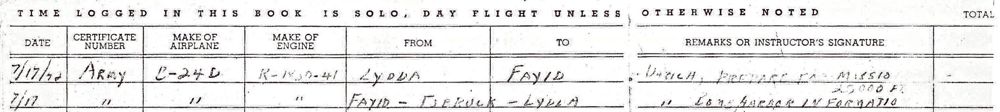 TIME LOGGED IN THIS BOOK IS SOLO, DAY FLIGHT UNLESS OTHERWISE NOTED TOTAL
DATE CERTIFICATE NUMBER MAKE OF AIRPLANE MAKE OF ENGINE FROM TO REMARKS OR INSTRUCTOR'S SIGNATURE
ARMY B-24D LYDDA FAYID PREPARE MISSIO
25000 Ft
7/17 " " " FAYID - TOBRUCK - LYDDA " BOMB HARBOR IN FORMATIO